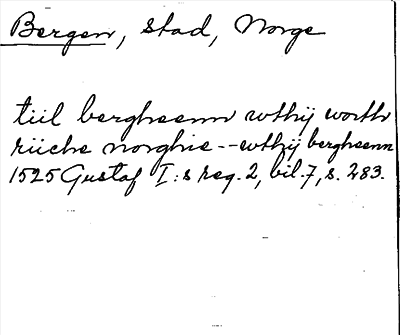 Bergen, Stad, Norge
tiil bergheenn wthij worth
riiche norghie -- wthij bergheenn
1525 Gustaf I:s reg. 2, bil. 7, s. 283.